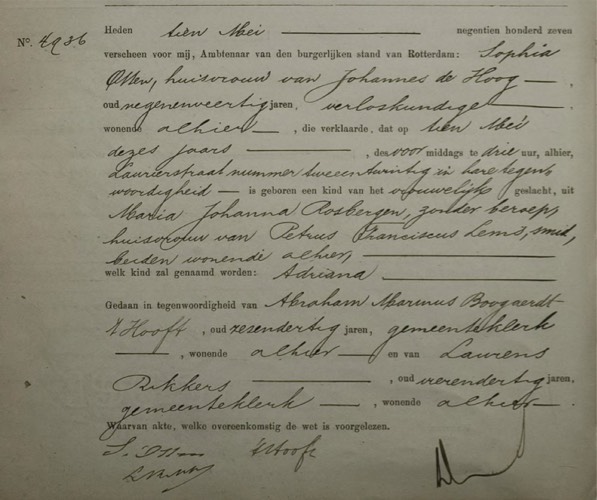 Nº. 4936
Heden tien Mei negentien honderd zeven
verscheen voor mij, Ambtenaar van den burgerlijken stand van Rotterdam: Sophia
Otten, huisvrouw van Johannes de Hoog
oud negenenveertig jaren, verloskundige
wonende alhier, die verklaarde, dat op tien Mei
dezes jaars, des voor middags te drie uur, alhier,
Laurierstraat nummer tweeentwintig in hare tegen-
woordigheid is geboren een kind van het vrouwelijk geslacht, uit
Maria Johanna Rosbergen, zonder beroep,
huisvrouw van Petrus Franciscus Lems, smid,
beiden wonende alhier,
welk kind zal genaamd worden: Adriana
Gedaan in tegenwoordigheid van Abraham Marinus Boogaerdt
't Hooft, oud zesendertig jaren, gemeenteklerk
, wonende alhier en van Laurens
Rikkers, oud vierendertig jaren,
gemeenteklerk, wonende alhier.
Waarvan akte, welke overeenkomstig de wet is voorgelezen.
't Hooft